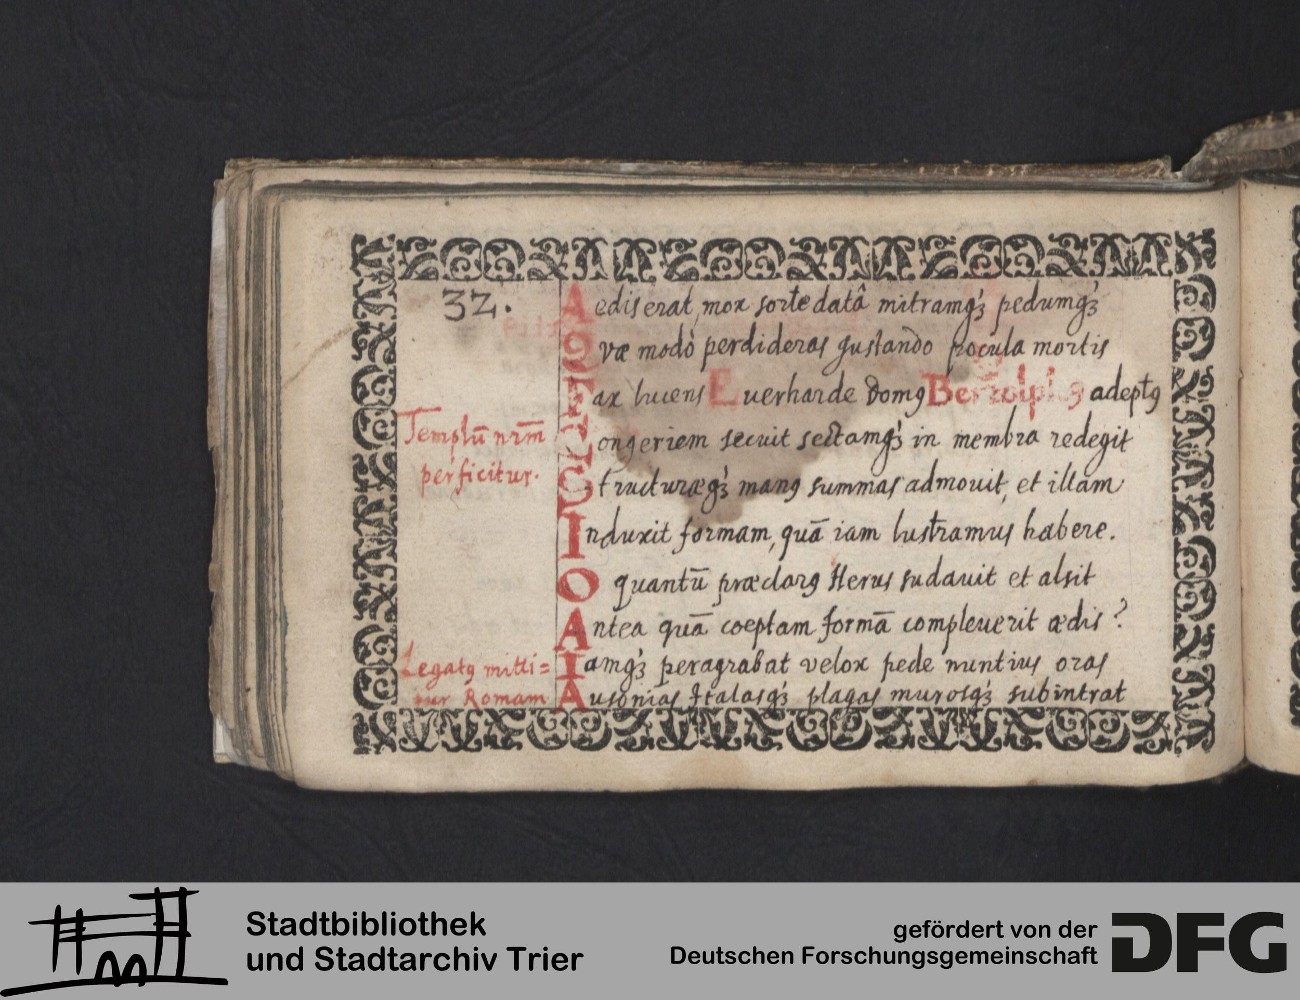 32.
Aedis erat, mox sorte datâ mitramqꝫ pedumqꝫ
Quæ modò perdideras gustando pocula mortis
Fax lucens Everharde domꝰ Bertolphꝰ adeptꝰ
Templū nrm̄
Congeriem secuit sectamqꝫ in membra redegit
perficitur.
Structuræqꝫ manꝰ summas admouit, et illam
Induxit formam, quā iam lustramus habere.
O quantū præclarꝰ Herus sudauit et alsit
Antea quā coeptam formā compleuerit ædis?
Legatꝰ mitti=
Iamqꝫ peragrabat velox pede nuntius oras
tur Romam
Ausonias Italasqꝫ plagas murosqꝫ subintrat
Stadtbibliothek
und Stadtarchiv Trier
gefördert von der
Deutschen Forschungsgemeinschaft
DFG